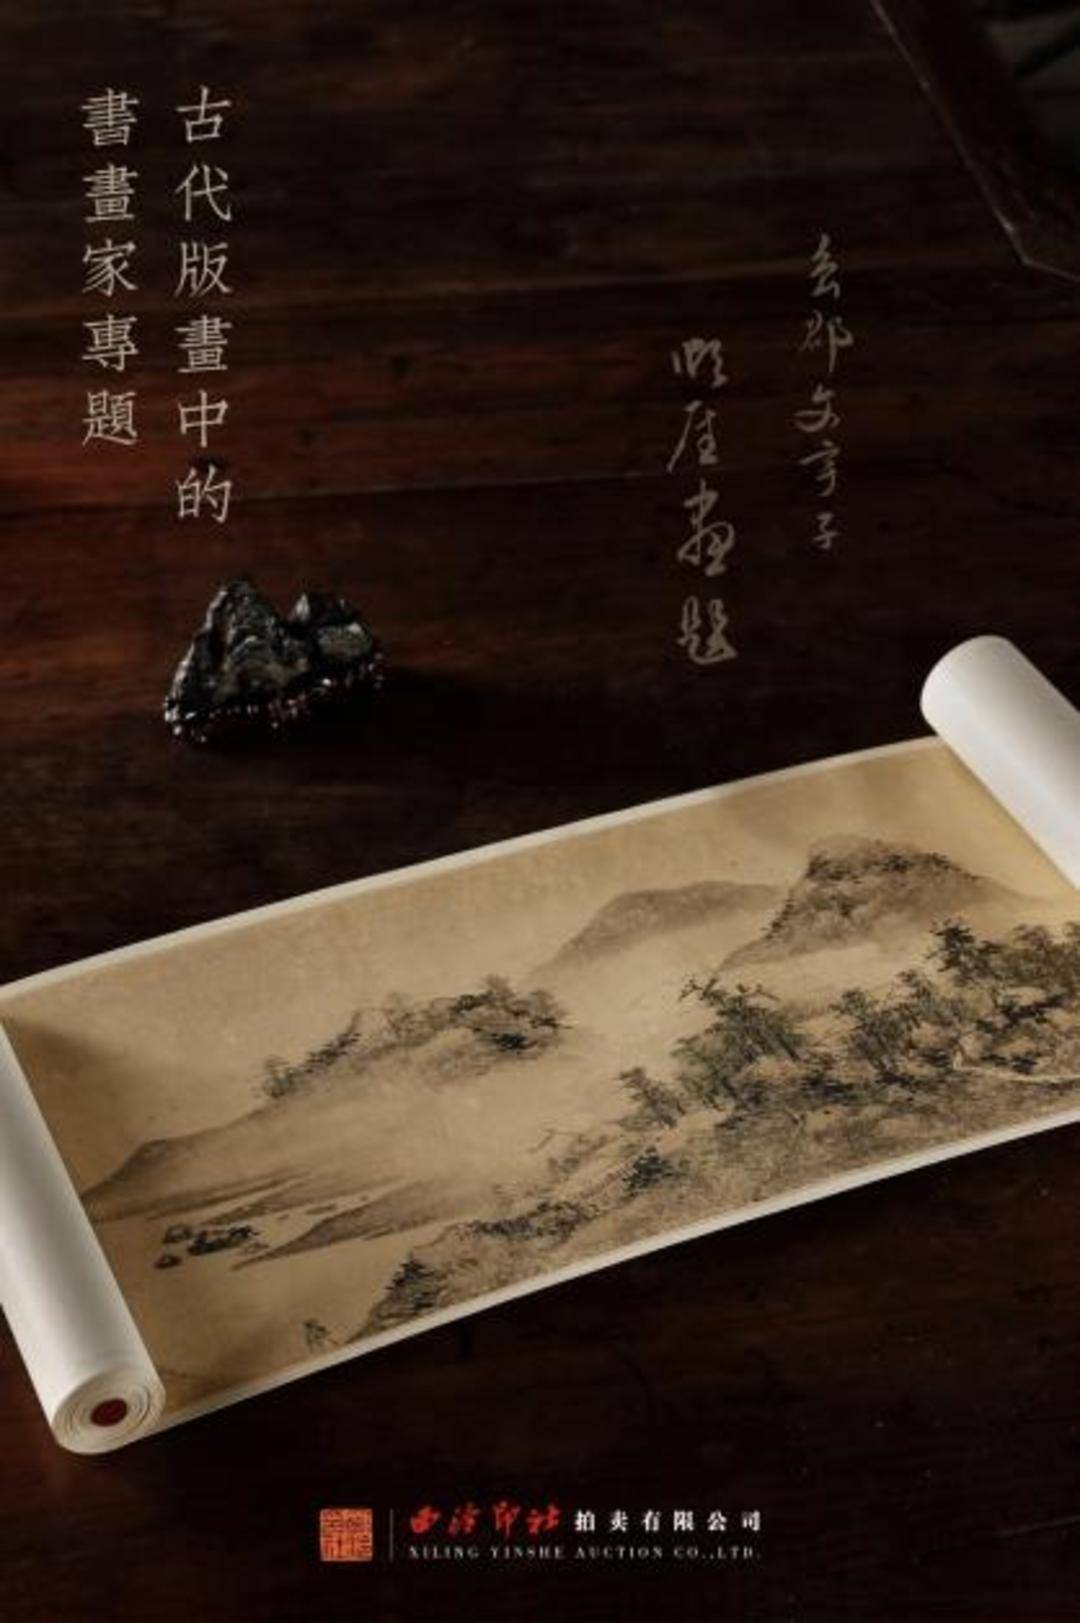 古代版畫中的
書畫家專題
顺厓畫題
西泠印社 拍卖有限公司
XILING YINSHE AUCTION CO.,LTD.